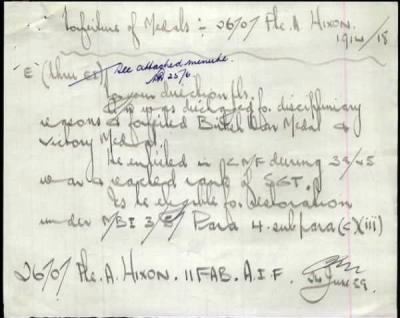 Forfeiture of Medals :- 2607 Pte. A. HIXON.
1914/18
"E" (thru
See attached minute
25/6
For your direction pls.
was discharged for disciplinary
reasons & forfeited British War Medal &
Victory Medal.
He enlisted in during 39/45
war & reached rank of SGT.
Is he eligible for restoration
under MBI 3/8/ Para 4. sub para (c)(iii)
2607 Pte. A. HIXON. 11 FAB. A.I.F.
24 June 59.